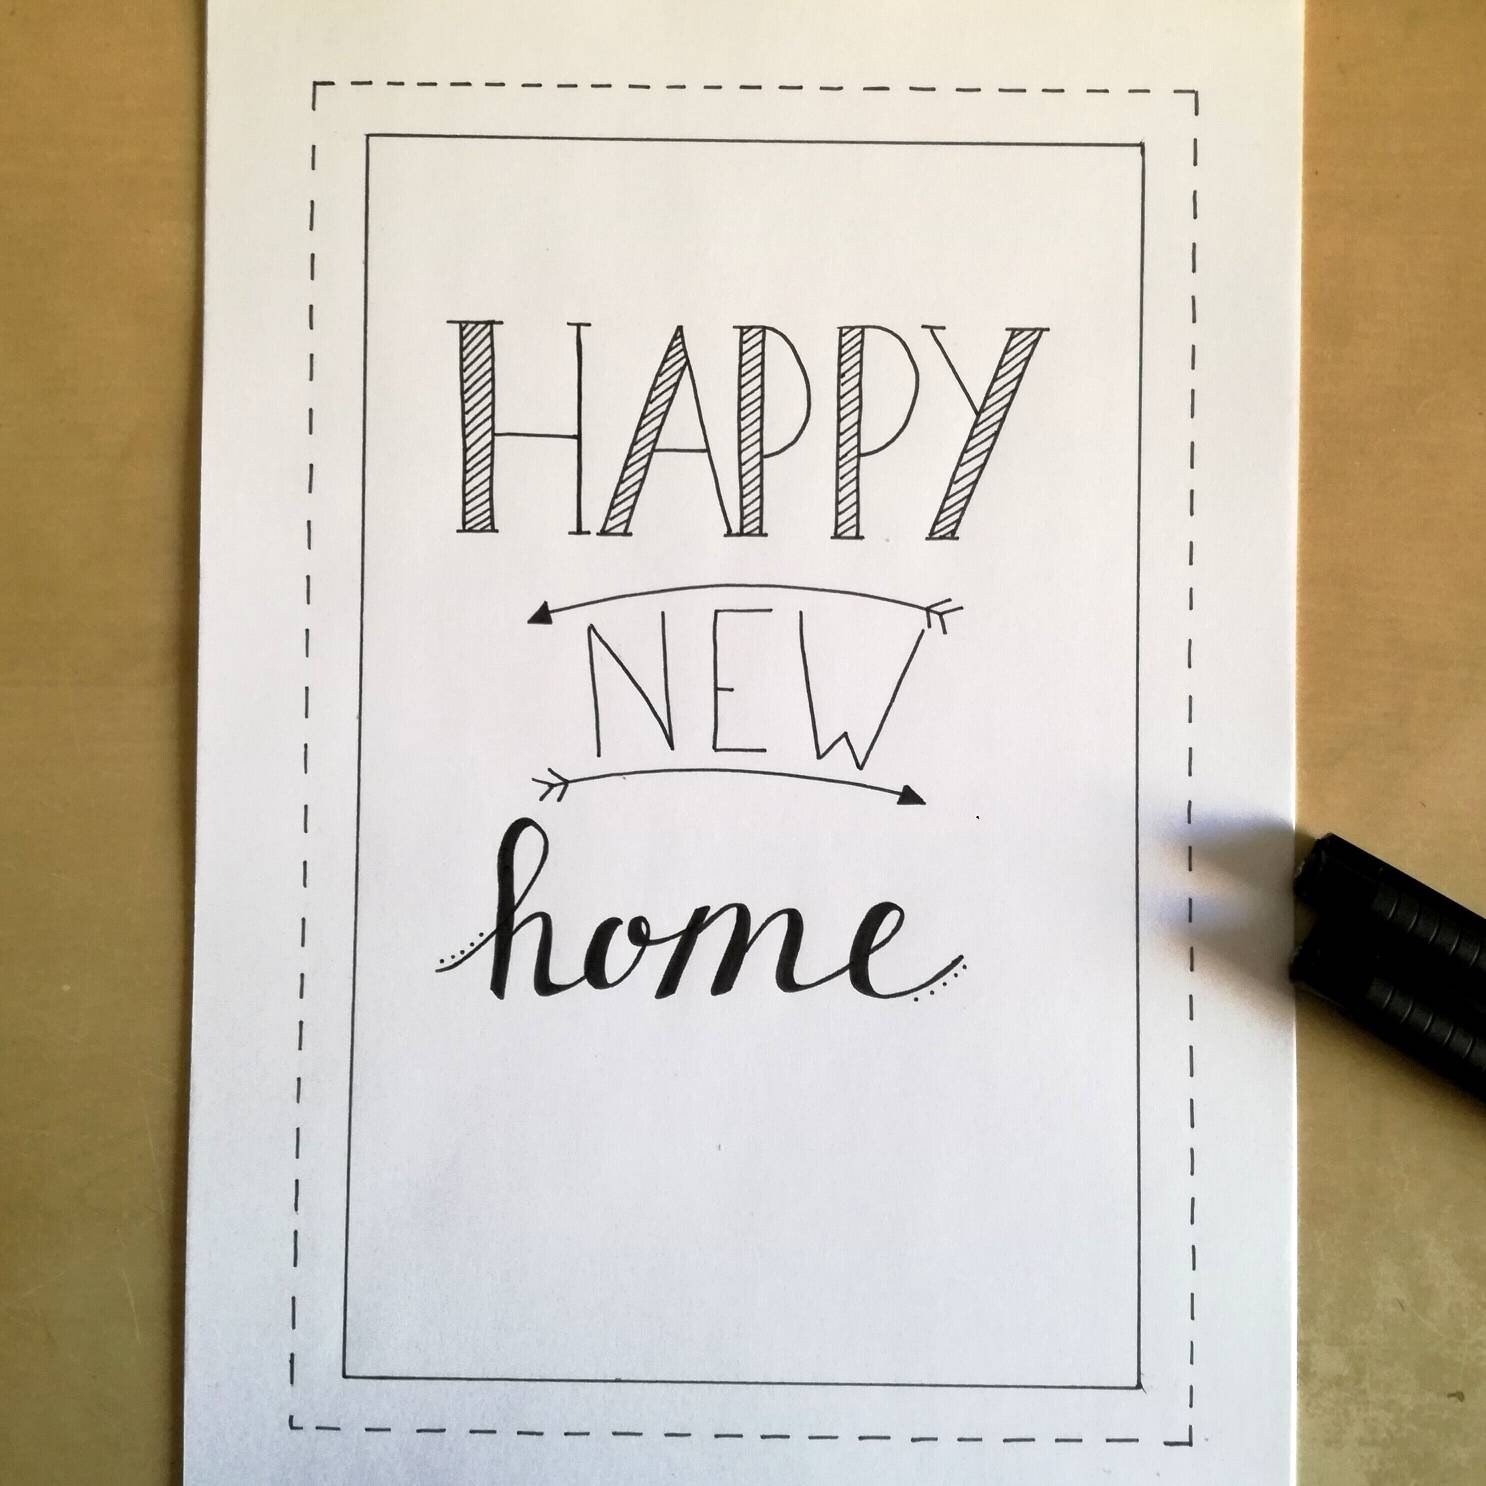 HAPPY
NEW
home